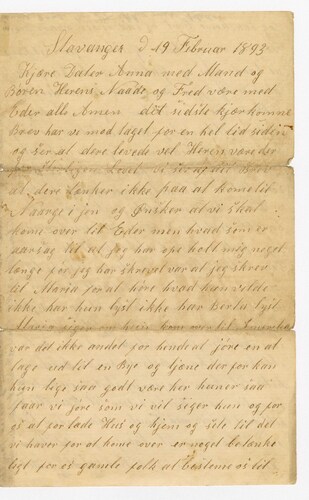 Stavanger d 19 Februar 1893
Kjære Dater Anna med Mand og
Børen Herens Naade og Fred være med
Eder alle Amen det sidste kjærkomne
Brev har vi mod taget for en hel tid siden
og ser at dere levede vel Heren være der
for Lovet vi ser af dit Brev
at dere tenker ikke paa at komme til
Naarge i jen og Ønsker at vi skal
kome over til Eder men hvad som er
aarsag til at jeg har ope holt mig noget
længe før jeg har skrevet var at jeg skrev
til Maria for at høre hvad hun vilde
ikke har hun lyst ikke har Berta lyst
Maria siger om hun kom over til Amerika
var det ikke andet for hende at jøre en at
tage ud til en Bye og tjene der for kan
hun lige saa godt være her hun er saa
faar vi jøre som vi vil siger hun og for
os at for lade Hus og hjem og sele til det
vi haver for at kome over er noget betænke
ligt for os gamle folk at bestemme os til